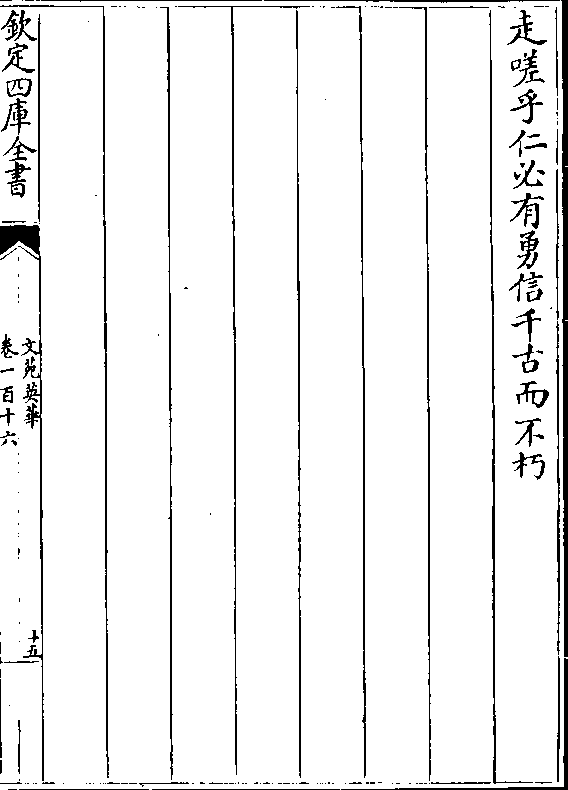 走嗟乎仁必有勇信千古而不朽
欽定四庫全書
文苑英華
卷一百十六
十五